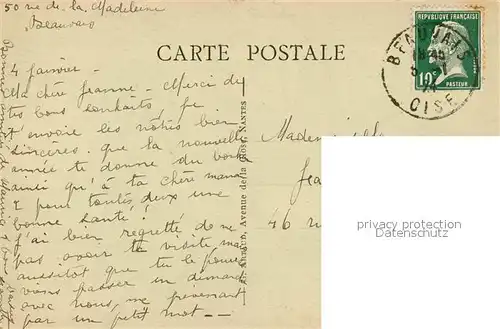 50 rue de la Madeleine
Beauvais
CARTE POSTALE
REPUBLIQUE FRANÇAISE
10c
PASTEUR
BEAUVAIS
OISE
4 janvier
Ma chère Jeanne - Merci de
tes bons souhaits, je
t'envoie les nôtres bien
sincères. que la nouvelle
année te donne du bonheur
ainsi qu'à ta chère maman
& pour toutes deux une
bonne santé!
J'ai bien regretté de ne
pas avoir ta visite mais
aussitôt que tu le pourras
viens passer un dimanche
avec nous, me prévenant
par un petit mot --
Ed. ARTAUD, Avenue de la Close, NANTES
Mademoiselle
Jea
46 r
privacy protection
watermark